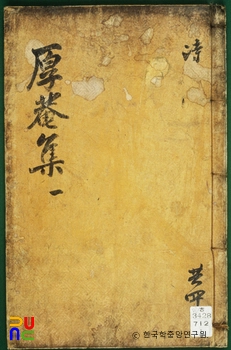 詩
共四
厚菴集 一
712
ⓒ 한국학중앙연구원